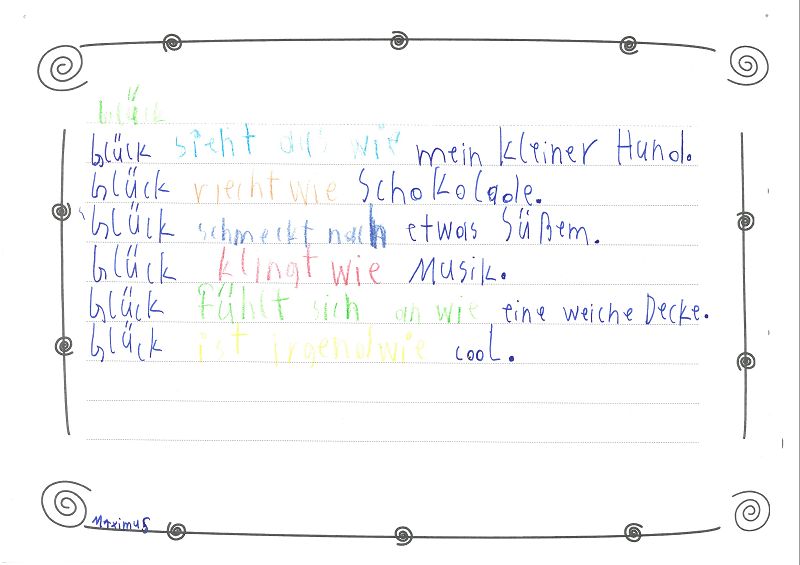 Glück
Glück sieht aus wie mein kleiner Hund.
Glück riecht wie Schokolade.
Glück schmeckt nach etwas Süßem.
Glück klingt wie Musik.
Glück fühlt sich an wie eine weiche Decke.
Glück ist irgendwie cool.
Maximus